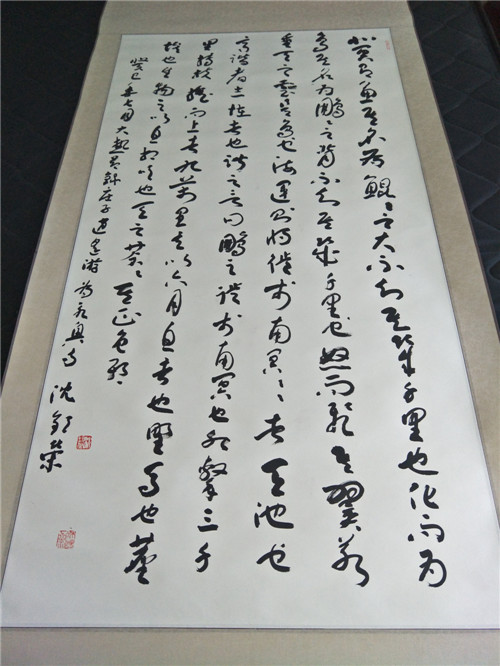 北冥有魚其名為鯤々之大不知其幾千里也化而為
鳥其名為鵬々之背不知其幾千里也怒而飛其翼若
垂天之雲是鳥也海運則將徙於南冥々者天池也
齊諧者志怪者也諧之言曰鵬之徙於南冥也水擊三千
里摶扶搖而上者九萬里去以六月息者也野馬也塵
埃也生物之以息相吹也天之蒼々其正色耶
癸巳年七月大熱 錄莊子逍遙游 沈 榮